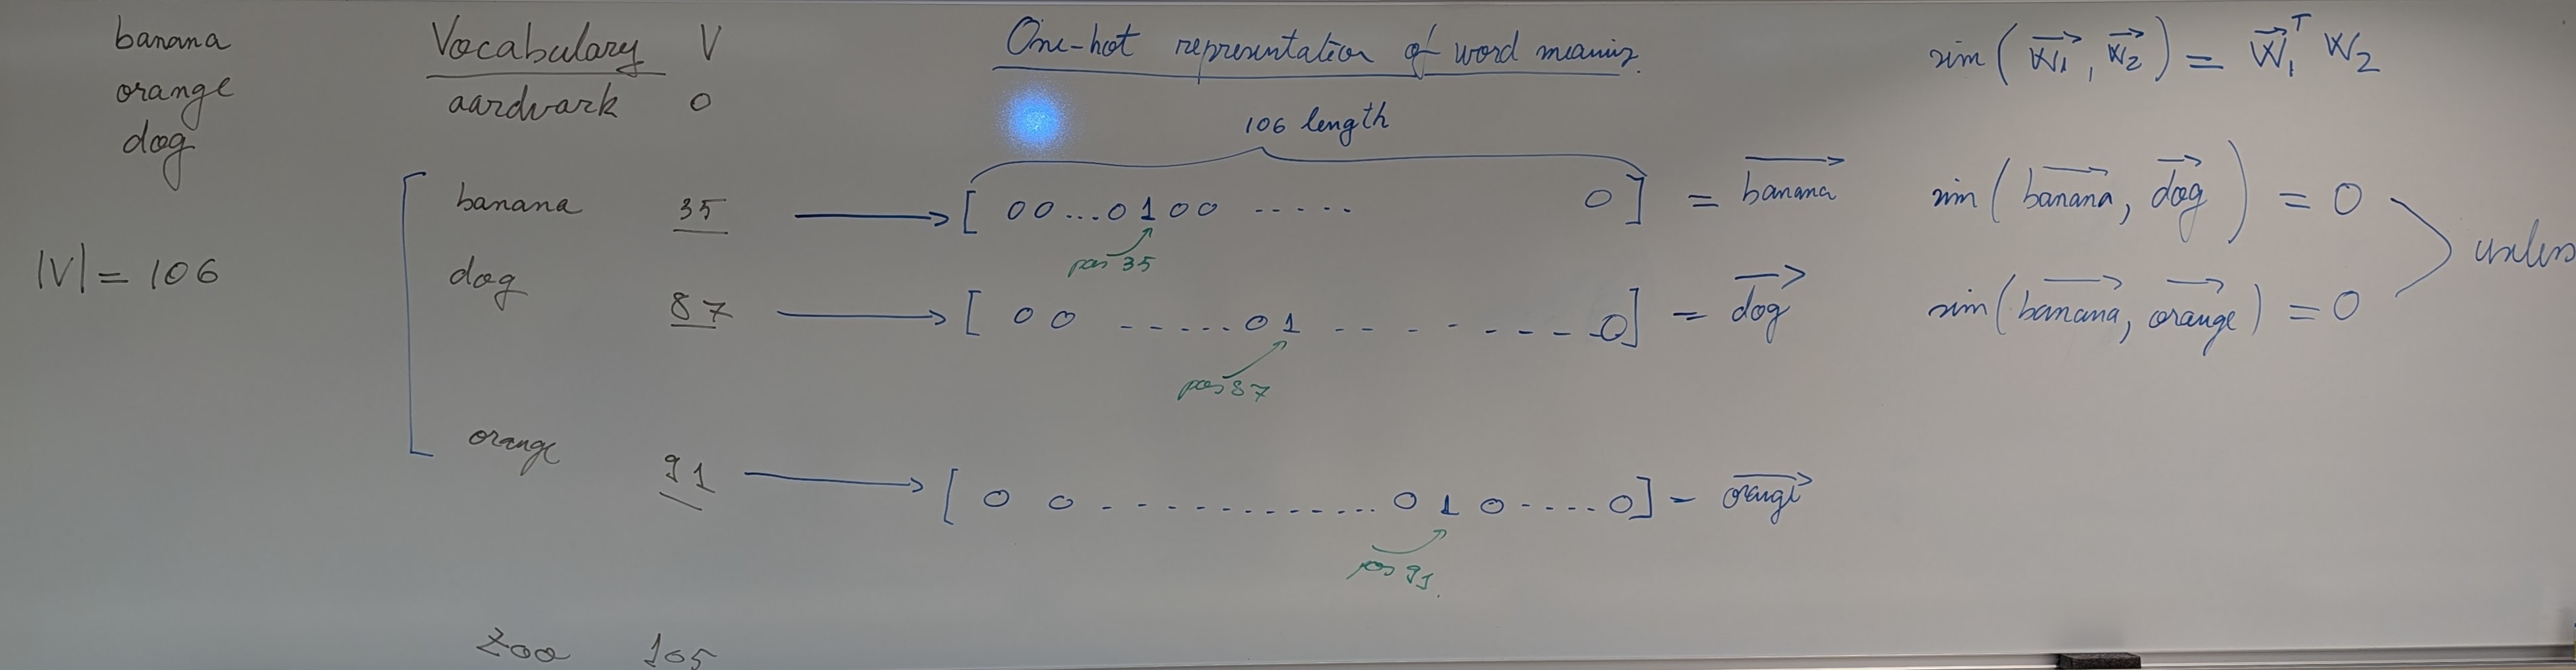 banana
orange
dog
|V| = 106
Vocabulary V
aardvark 0
banana 35
dog 87
orange 91
zoo 105
One-hot representation of word meaning.
106 length
[ 00...0100 ..... 0] = banana
pos 35
[ 0 0 .....01.. - - - - - - 0] = dog
pos 87
[ 0 0 ............... 0 1 0 .... 0] = orange
pos 91.
sim(w₁, w₂) = w₁ᵀ w₂
sim(banana, dog) = 0
sim(banana, orange) = 0